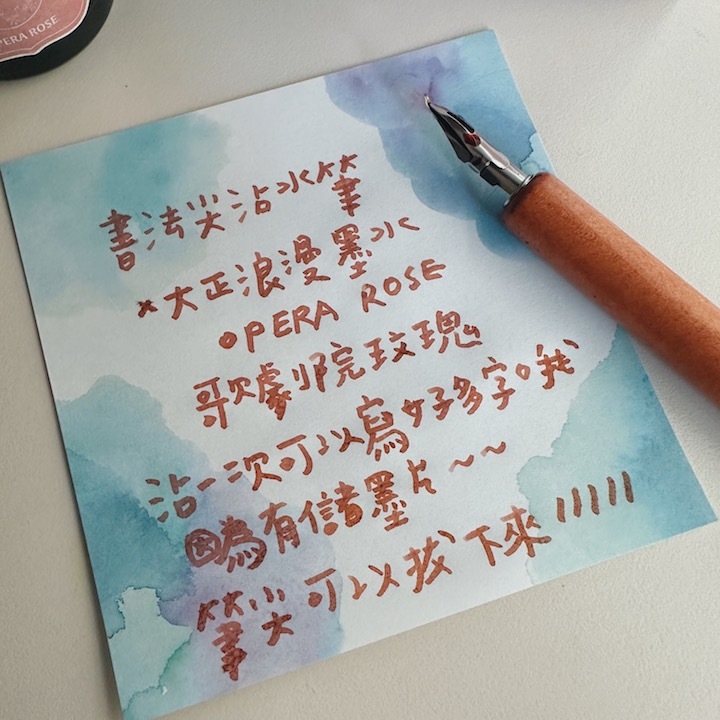 PERA ROSE
書法尖沾水筆
*大正浪漫墨水
OPERA ROSE
歌劇院玫瑰
沾一次可以寫好多字哦
因為有儲墨片~~
筆尖可以拔下來!!!!!